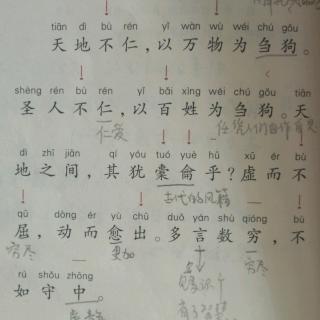 tiān dì bù rén yǐ wàn wù wéi chú gǒu
天地不仁,以万物为刍狗。
shèng rén bù rén yǐ bǎi xìng wéi chú gǒu tiān
圣人不仁,以百姓为刍狗。天
仁爱 任凭人们自作自息
dì zhī jiān qí yóu tuó yuè hū xū ér bù
地之间,其犹橐龠乎?虚而不
古代的风箱
qū dòng ér yù chū duō yán shù qióng bù
屈,动而愈出。多言数穷,不
穷尽 更加 穷尽
rú shǒu zhōng
如守中。